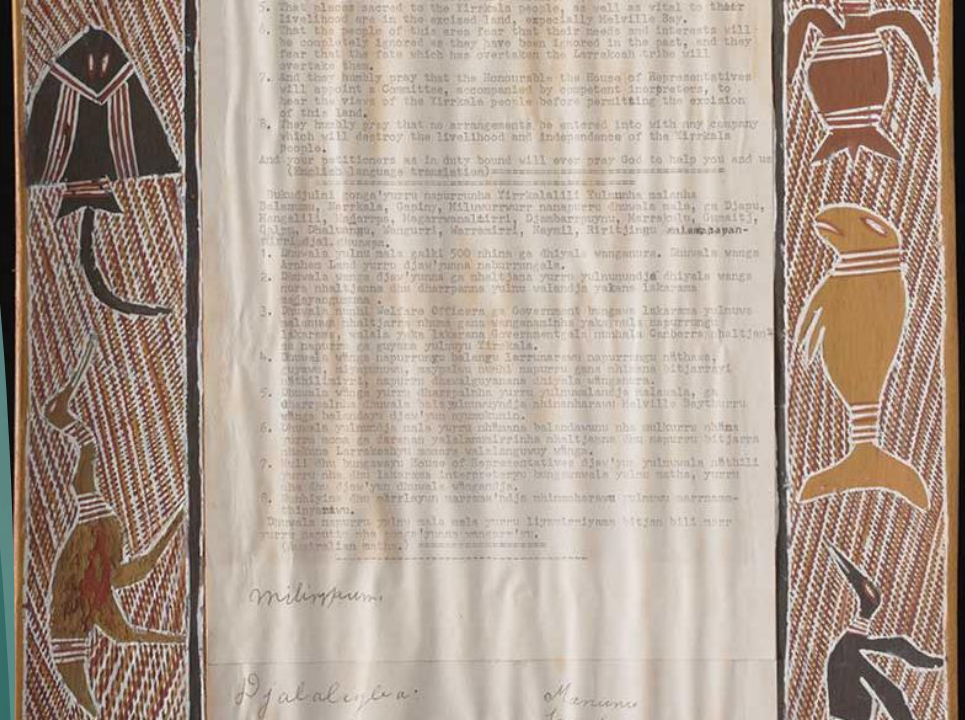 5. That places sacred to the Yirrkala people, as well as vital to their
livelihood are in the excised land, especially Melville Bay.
6. That the people of this area fear that their needs and interests will
be completely ignored as they have been ignored in the past, and they
fear that the fate which has overtaken the Larrakeah tribe will
overtake them.
7. And they humbly pray that the Honourable the House of Representatives
will appoint a Committee, accompanied by competent interpreters, to
hear the views of the Yirrkala people before permitting the excision
of this land.
8. They humbly pray that no arrangements be entered into with any company
which will destroy the livelihood and independence of the Yirrkala
people.
And your petitioners as in duty bound will ever pray God to help you and us
(English language translation)
Bukudjulni gonga'yurru napurrunha Yirrkalalili Yulnunha malanha
Balamumu, Narrkala, Gapiny, Miliwurrwurr nanapurru dhuwala mala, ga Djapu,
Mangalili, Madarrpa, Djambarrpuynu, Marrakulu, Gumaitj,
Galpu, Dhalwangu, Wangurri, Warramirri, Naymil, Riritjingu
1. Dhuwala yulnu mala galki 500 nhina ga dhiyala wanganura. Dhuwala wanga
Arnhem Land yurru djaw'yunna naburrungala.
2. Dhuwala wanga djaw'yunna ga nhaltjana yurru yulnunundja dhiyala wanga
nura nhaltjanna dhu dharrpanna yulnu walandja yakana lakarama
madayangumuna.
3. Dhuwala nunhi Welfare Officers ga Government bungawa lakarama yulnuwa
malanuwa nhaltjarra nhuma gana wanganaminha yaka nula napurrungu
lakarama wlala yaka lakarama Governmentgala nunhala Canberra nhaltjan-
na napurru ga guyana yulnuyu Yirrkala.
4. Dhuwala wänga napurrungyu balangu larrunarawu napurrungu näthawa,
guyawu, miyapunuwu, maypalwu nunhi napurru gana nhinana bitjarrayi
näthilimirri, napurru dhawalguyanana dhiyala wänganura.
5. Dhuwala wänga yurru dharrpalnha yurru yulnuwalandja malawala, ga
dharrpalnha dhuwala bala yulnuwuyndja nhinanharawu Melville Baythurru
wänga balandayu djaw'yun nyumukunin.
6. Dhuwala yulnundja mala yurru nhämana balandawunu nha mulkurru nhäma
yurru moma ga darangan yalalanumirrinha nhaltjanna dhu napurru bitjarra
nhakuna Larrakeahyu momara walalanguwuy wänga.
7. Nuli dhu bungawayu House of Representatives djaw'yun yulnuwala näthili
yurru nha dhu lakarama interpreteryu bungawawala yulnu matha, yurru
nha dhu djaw'yun dhuwala wängandja.
8. Nunhiyina dhu märrlayun marrama'ndja nhinanharawu yulnuwu marrnama-
thinyarawu.
Dhuwala napurru yulnu mala yurru liyamirriyama bitjan bili marr
yurru napurru nha gonga'yunna wangarr'yu.
(Australian matha.)
Milirrpum
Djalalingba
Manunu